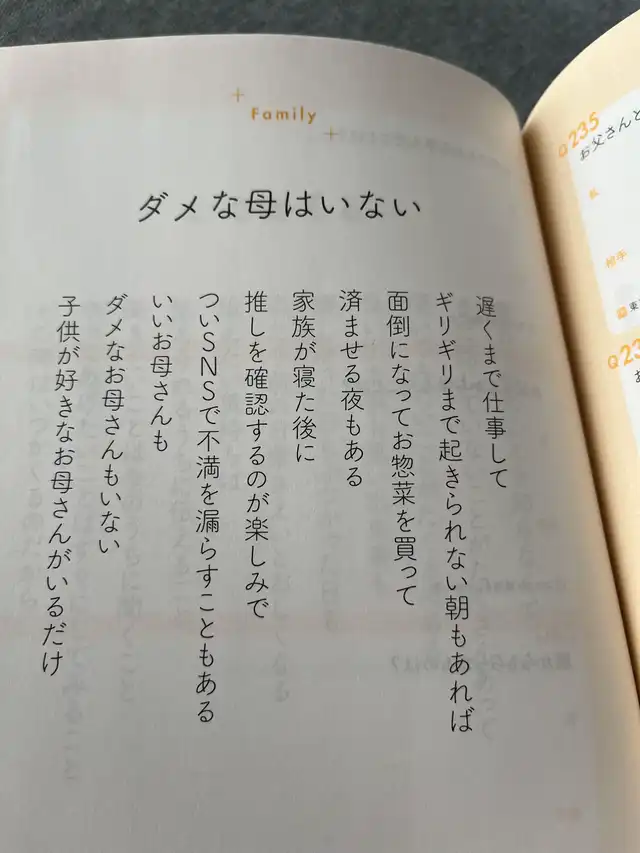 Family
ダメな母はいない
遅くまで仕事して
ギリギリまで起きられない朝もあれば
面倒になってお惣菜を買って
済ませる夜もある
家族が寝た後に
推しを確認するのが楽しみで
ついSNSで不満を漏らすこともある
いいお母さんも
ダメなお母さんもいない
子供が好きなお母さんがいるだけ
Q235
お父さんと
私
相手
東
Q23
お